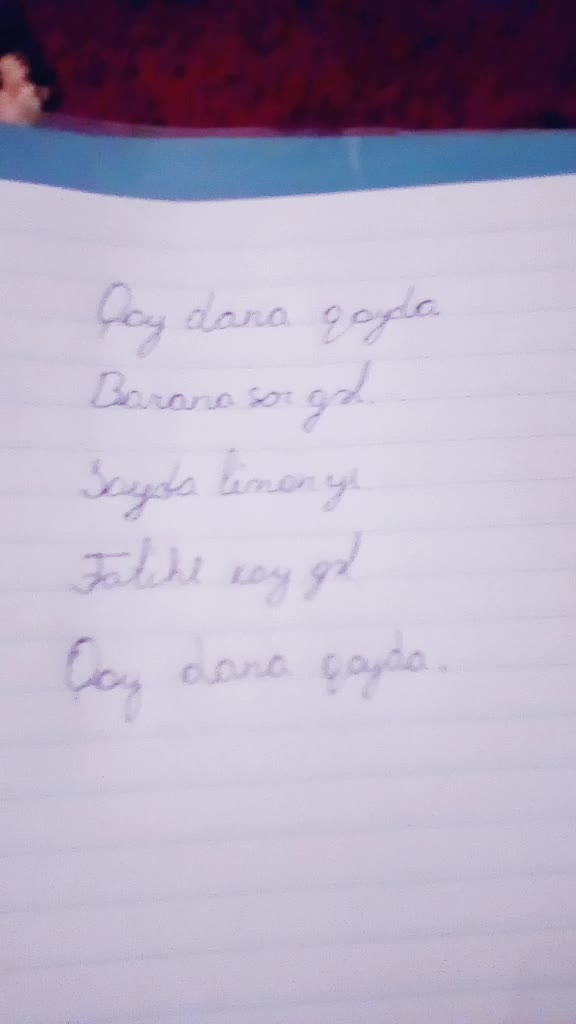 Qay dana qayda
Barana sor gəl
Sayda limon yi
Fatihl xay gəl
Qay dana qayda.